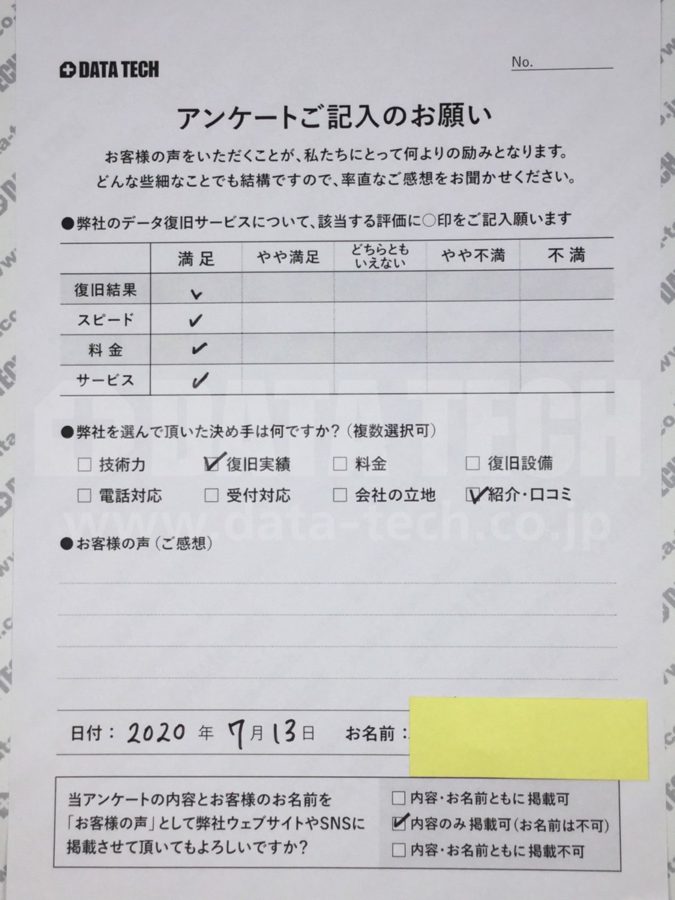 DATA TECH
No.
アンケートご記入のお願い
お客様の声をいただくことが、私たちにとって何よりの励みとなります。
どんな些細なことでも結構ですので、率直なご感想をお聞かせください。
●弊社のデータ復旧サービスについて、該当する評価に○印をご記入願います
満足 やや満足 どちらとも いえない やや不満 不満
復旧結果 ✓
スピード ✓
料金 ✓
サービス ✓
DATA TECH
●弊社を選んで頂いた決め手は何ですか?(複数選択可)
□ 技術力 ☑ 復旧実績 □ 料金 □ 復旧設備
□ 電話対応 □ 受付対応 □ 会社の立地 ☑ 紹介・口コミ
www.data-tech.co.jp
●お客様の声(ご感想)
日付: 2020 年 7月 13日 お名前:
当アンケートの内容とお客様のお名前を
「お客様の声」として弊社ウェブサイトやSNSに
掲載させて頂いてもよろしいですか?
□ 内容・お名前ともに掲載可
☑ 内容のみ掲載可(お名前は不可)
□ 内容・お名前ともに掲載不可